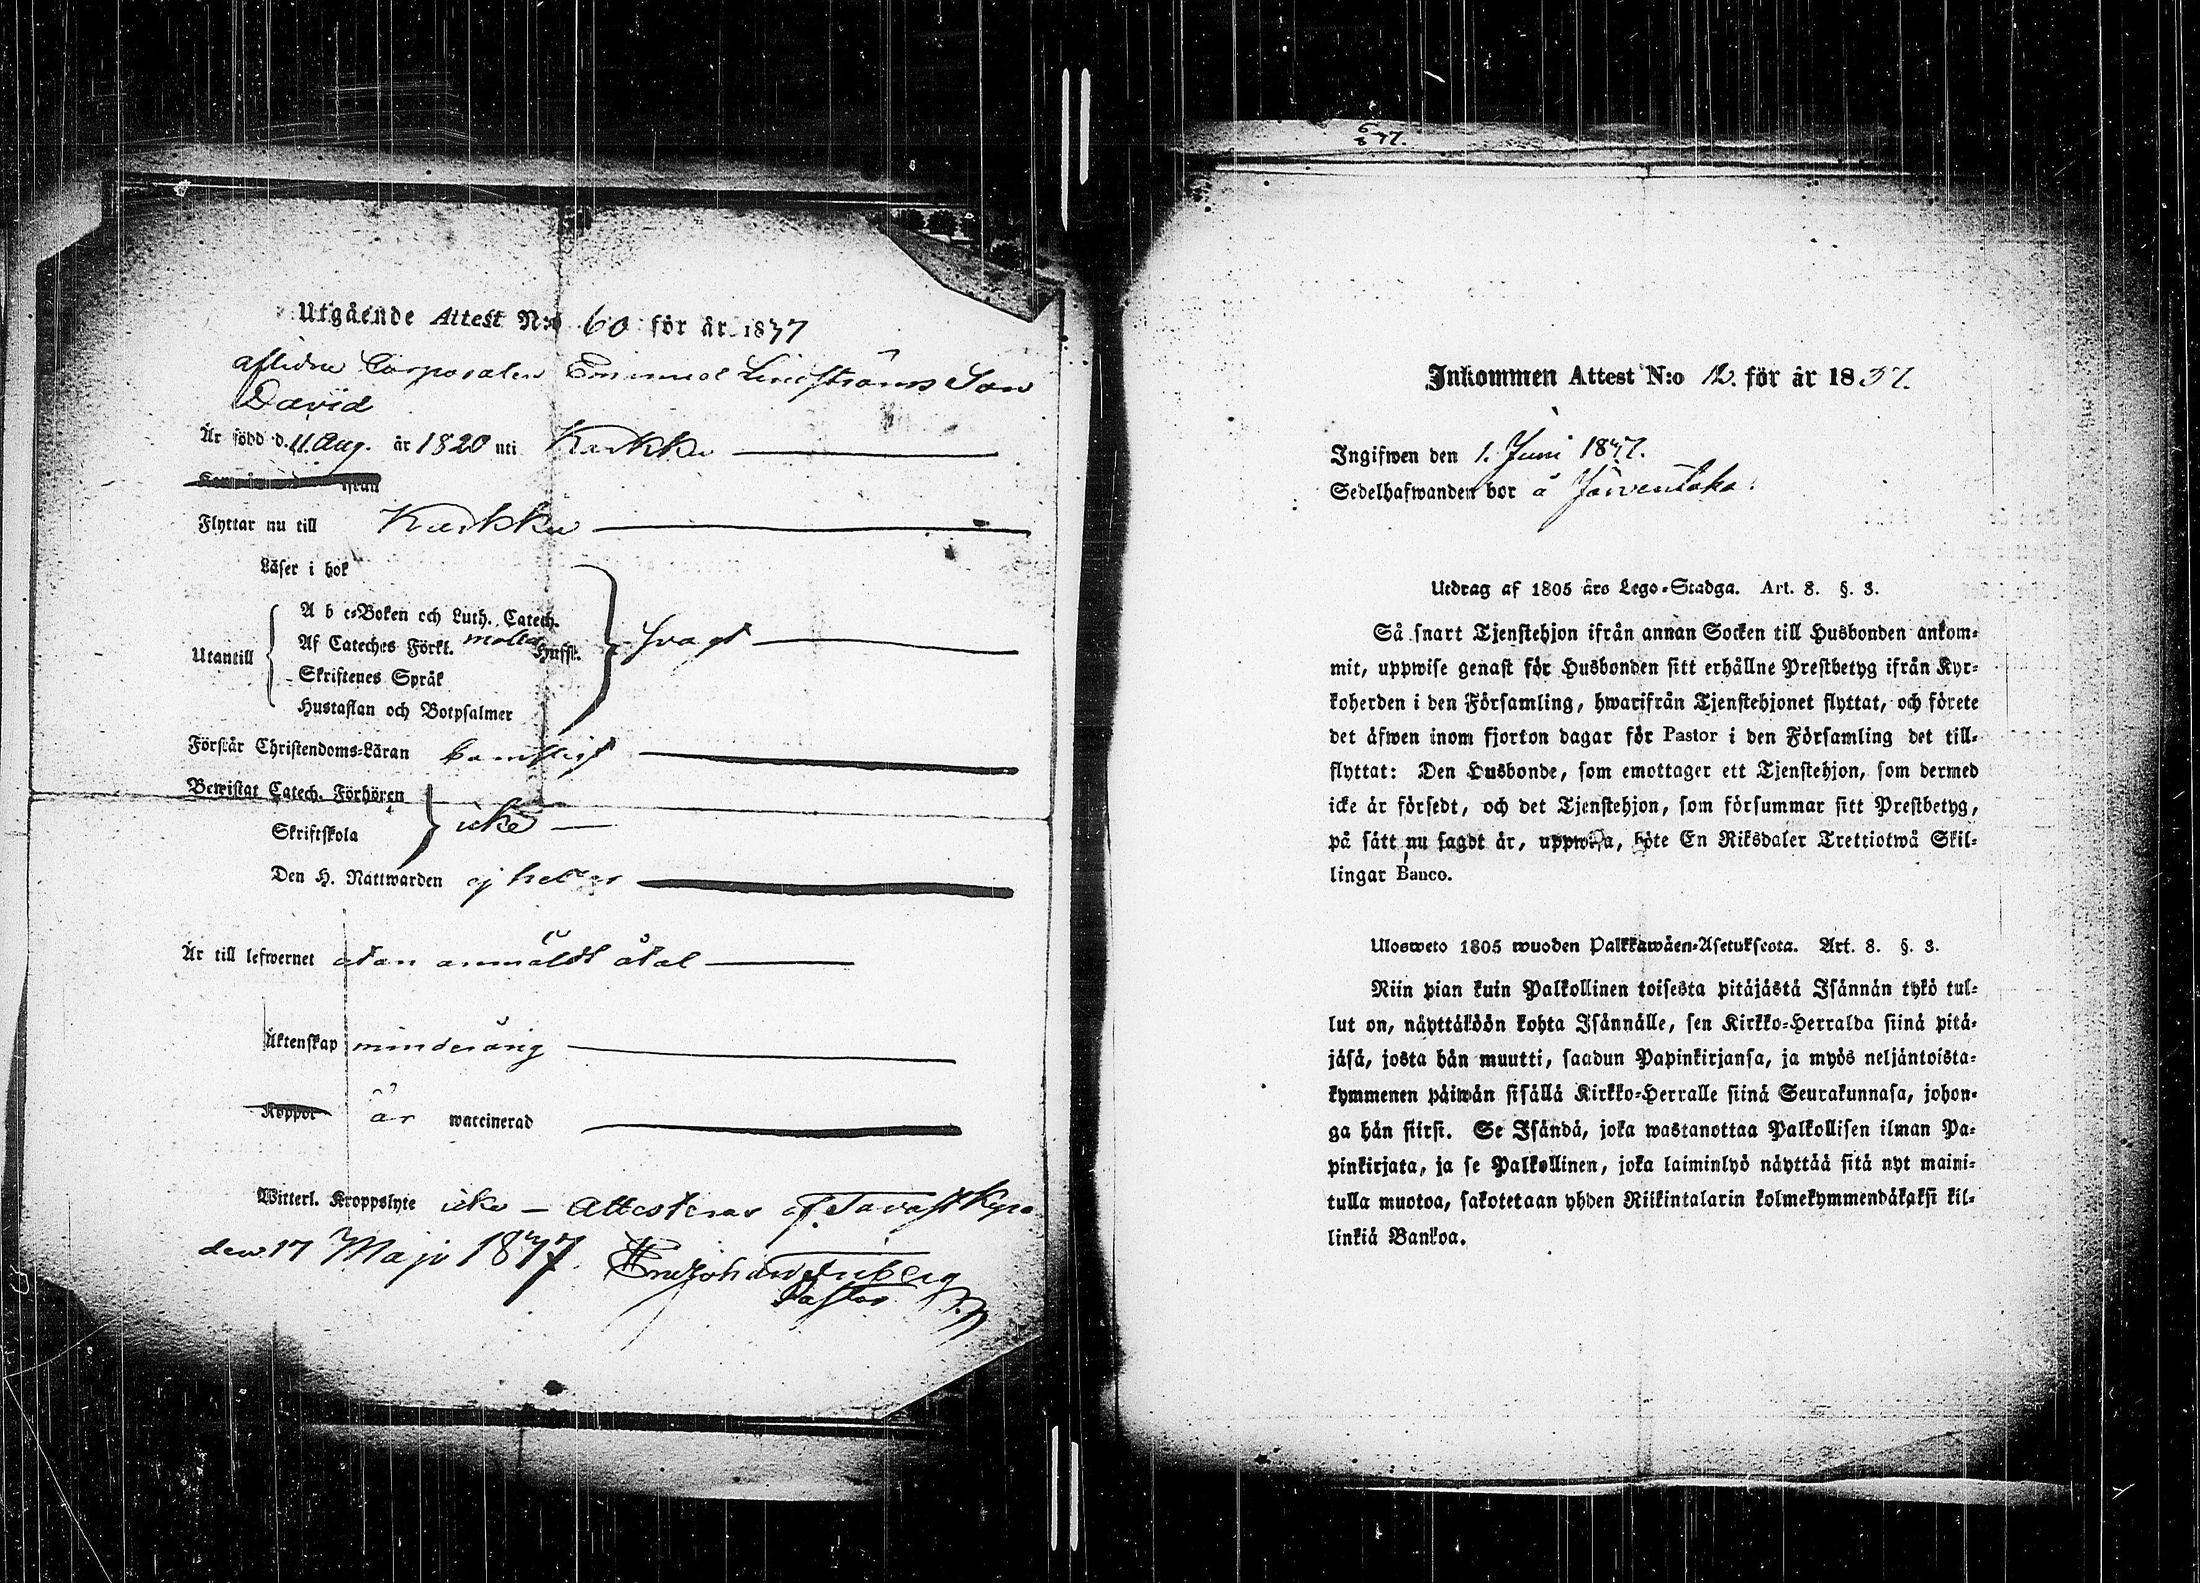 Utgående Attest N:o 60 för år 1837
aflidne Corporalen Emanuel Lindströms Son
David
Är född d. 11. Aug. år 1820 uti Karkku
ifrån
Flyttar nu till Karkku
Läser i bok
A b c-Boken och Luth. Catech.
Utantill Af Cateches Förkl. Hufst. svagt
Skriftenes Språk
Hustaflan och Botpsalmer
Förstår Christendoms-Läran
Bewistat Catech. Förhören
Skriftskola icke
Den H. Nattwarden ej heller
Är till lefwernet utan anmäldt åtal
Äktenskap minderårig
Koppor är waccinerad
Witterl. Kroppslyte icke — Attesterar af Tavastkyro
den 17 Maji 1837.
Pastor
6/8 37.
Inkommen Attest N:o 12. för år 1837.
Ingifwen den 1. Juni 1837.
Sedelhafwanden bor å Järventaka.
Utdrag af 1805 års Lego-Stadga. Art. 8. §. 3.
Så snart Tjenstehjon ifrån annan Socken till Husbonden ankom-
mit, uppwise genast för Husbonden sitt erhållne Prestbetyg ifrån Kyr-
koherden i den Församling, hwarifrån Tjenstehjonet flyttat, och förete
det äfwen inom fjorton dagar för Pastor i den Församling det till-
flyttat: Den Husbonde, som emottager ett Tjenstehjon, som dermed
icke är försedt, och det Tjenstehjon, som försummar sitt Prestbetyg,
på sätt nu sagdt är, uppwisa, böte En Riksdaler Trettiotwå Skil-
lingar Banco.
Ulosweto 1805 wuoden Palkkawäen-Asetuksesta. Art. 8. §. 3.
Niin pian kuin Palkollinen toisesta pitäjästä Isännän tykö tul-
lut on, näyttäköön kohta Isännälle, sen Kirkko-Herralda siinä pitä-
jäsä, josta hän muutti, saadun Papinkirjansa, ja myös neljäntoista-
kymmenen päiwän sisällä Kirkko-Herralle siinä Seurakunnasa, johon-
ga hän siirsi. Se Isändä, joka wastanottaa Palkollisen ilman Pa-
pinkirjata, ja se Palkollinen, joka laiminlyö näyttää sitä nyt maini-
tulla muotoa, sakotetaan yhden Riikintalarin kolmekymmendäkaksi kil-
linkiä Bankoa.